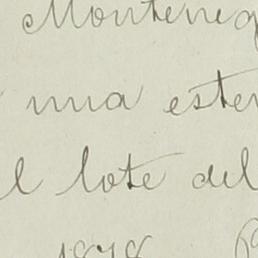 Monteneg
una esten
l lote del
1878